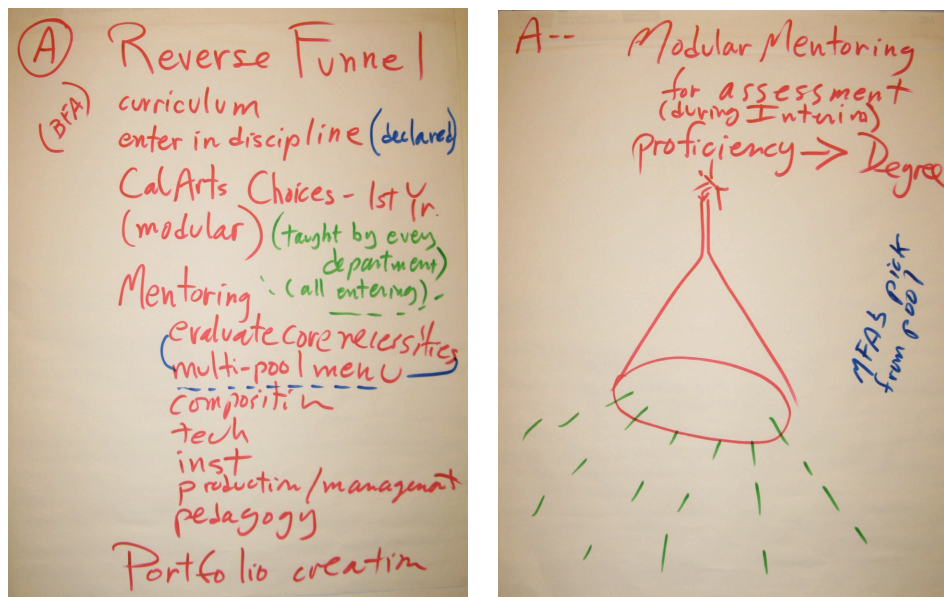 A Reverse Funnel
(BFA)
curriculum
enter in discipline (declared)
CalArts Choices - 1st Yr.
(modular) (taught by every
department)
Mentoring (all entering)
evaluate core necessities
multi-pool menu
composition
tech
inst
production/management
pedagogy
Portfolio creation
A-- Modular Mentoring
for assessment
(during Interim)
proficiency → Degree
MFAs pick
from pool